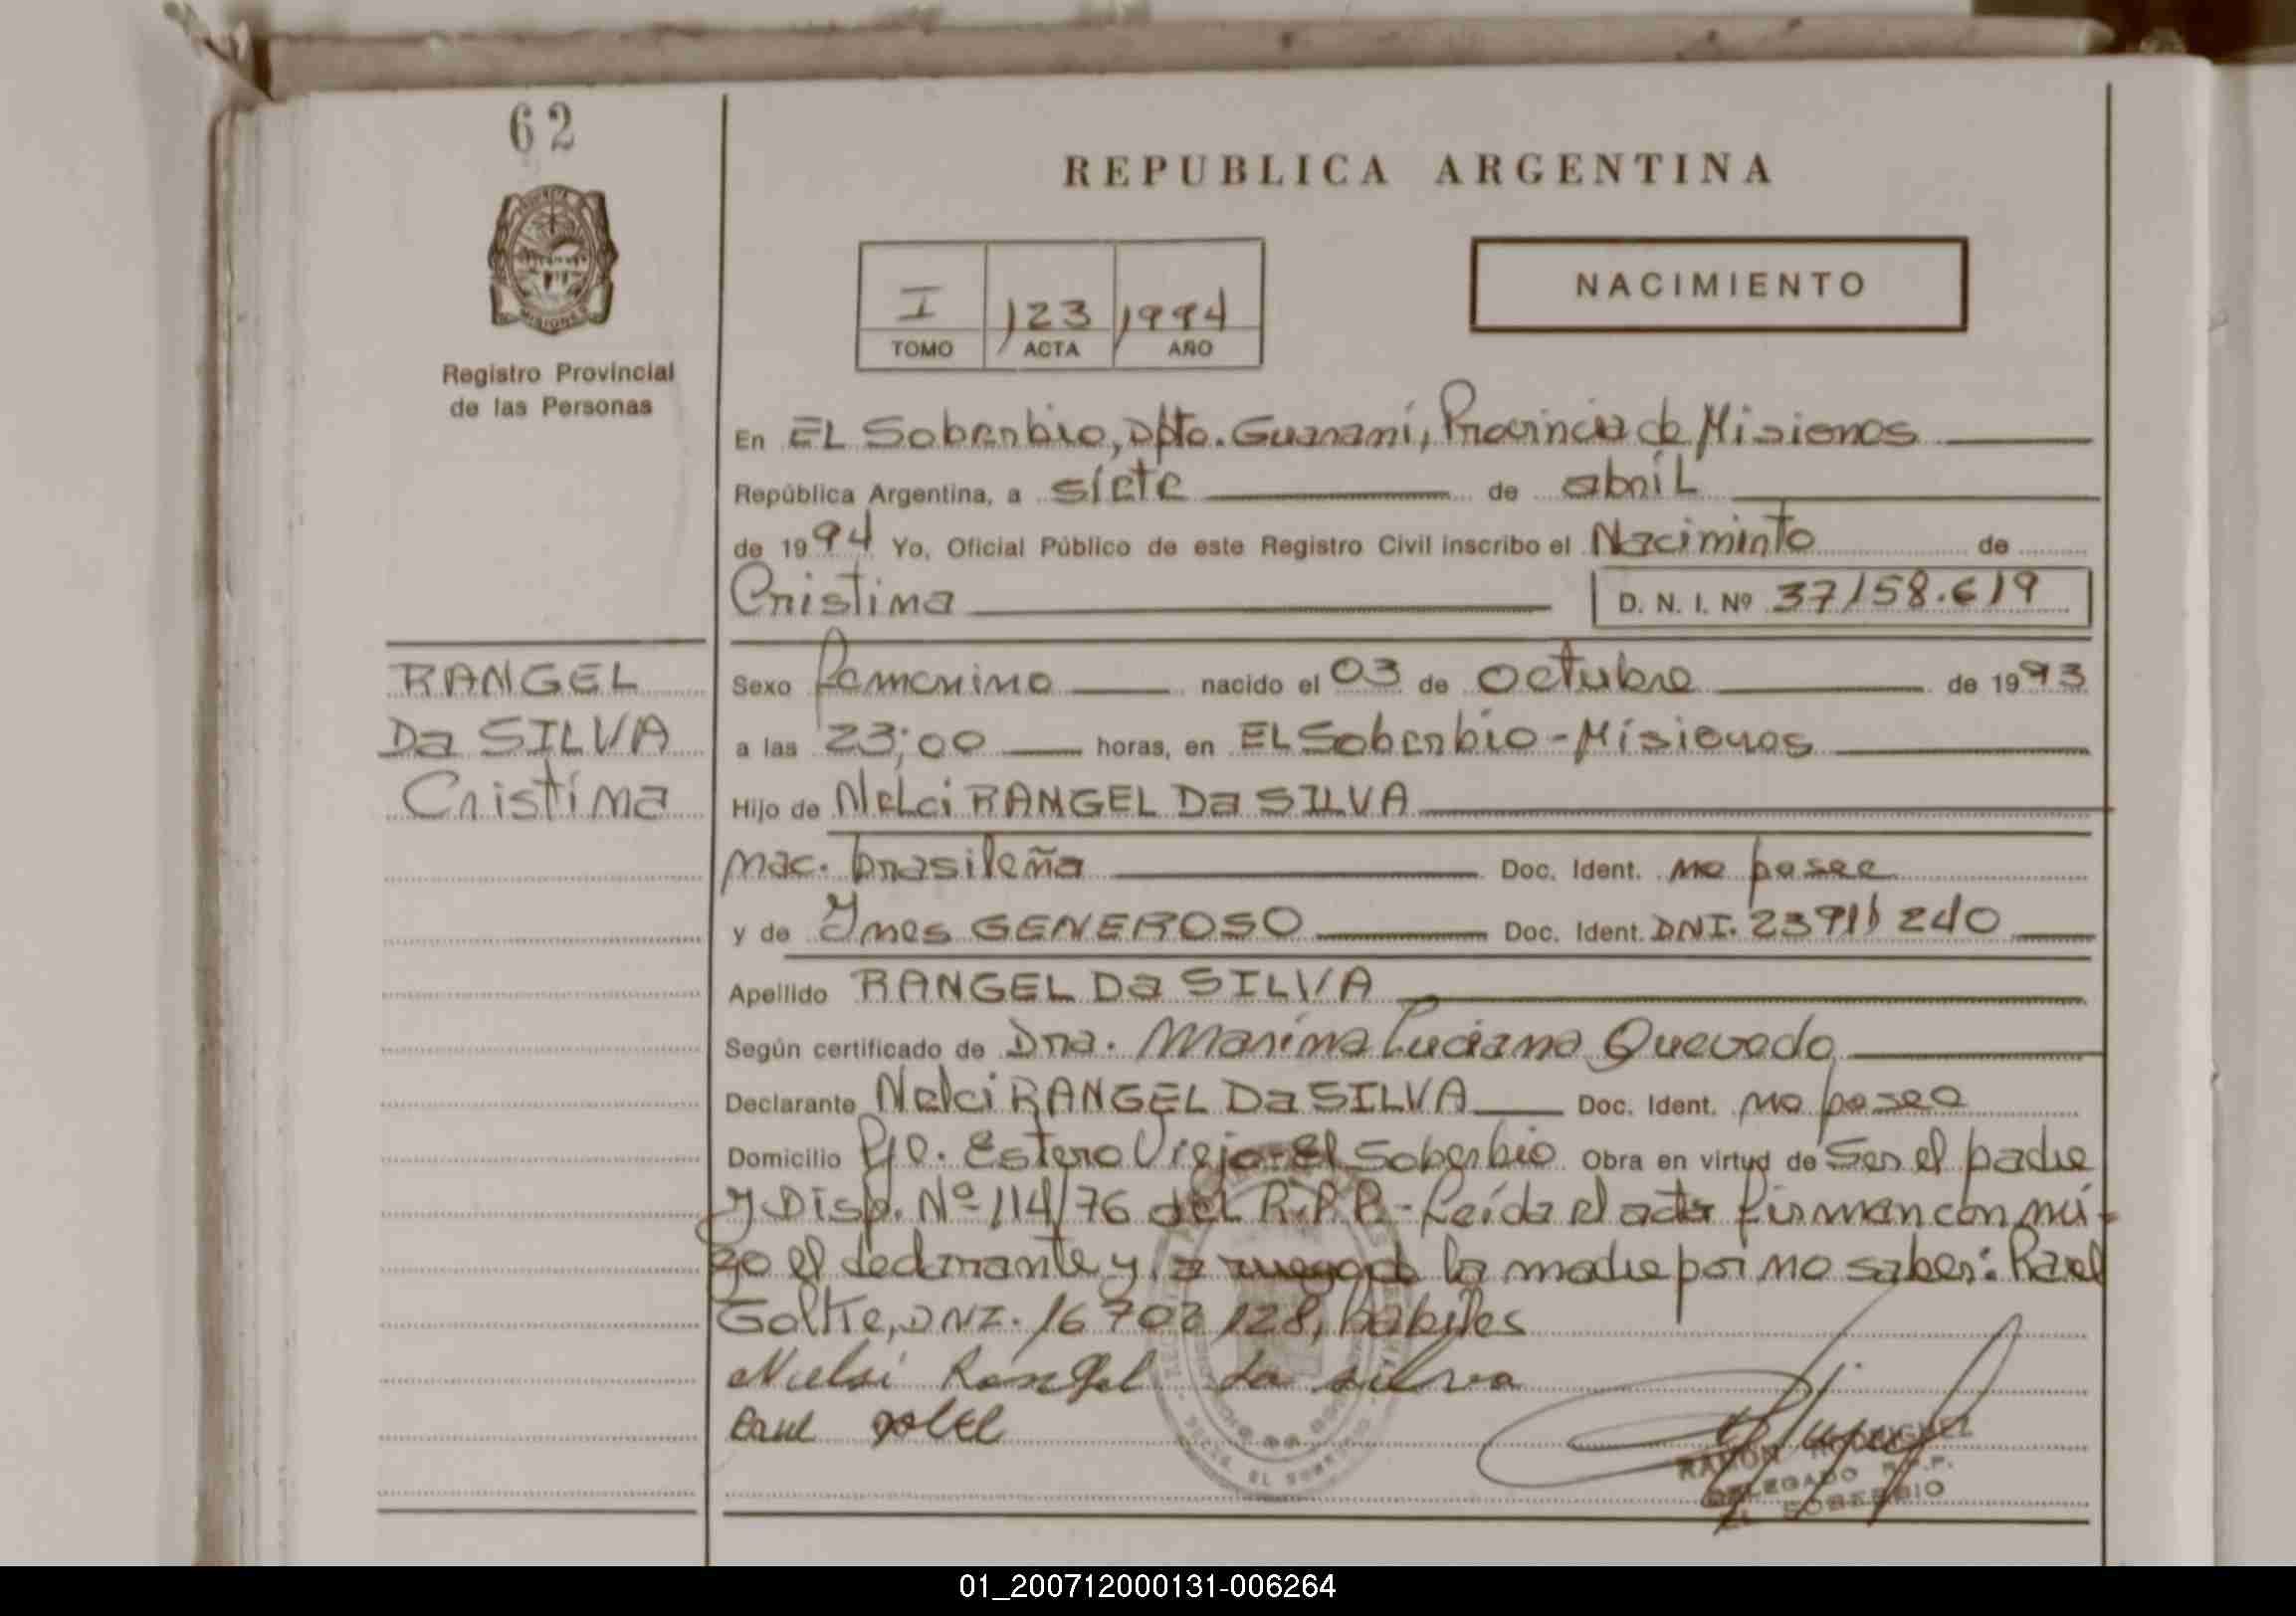 62
REPUBLICA ARGENTINA
NACIMIENTO
I 123 1994
TOMO ACTA AÑO
Registro Provincial
de las Personas
En EL Soberbio, Dpto. Guaraní, Provincia de Misiones
República Argentina, a siete de abril
de 1994 Yo, Oficial Público de este Registro Civil inscribo el Naciminto de
Cristina D. N. I. Nº 37158.619
RANGEL
Da SILVA
Cristina
Sexo femenino nacido el 03 de octubre de 1993
a las 23;00 horas, en EL Soberbio - Misiones
Hijo de Nelci RANGEL Da SILVA
nac. brasileña Doc. Ident. no posee
y de Ynes GENEROSO Doc. Ident. DNI. 23911240
Apellido RANGEL Da SILVA
Según certificado de Dra. Marina Luciana Quevedo
Declarante Nelci RANGEL Da SILVA Doc. Ident. no posee
Domicilio Pje. Estero Viejo - El Soberbio Obra en virtud de Ser el padre
y Disp. Nº 114/76 del R.P.P. - Leída el acta firman conmi-
go el declarante y, a ruego de la madre por no saber: Raul
Golke, DNI. 16 702 128, hábiles
Nielsi Rangel da silva
Raul
RAMON RODRIGUEZ
DELEGADO R.P.P.
EL SOBERBIO
01_200712000131-006264